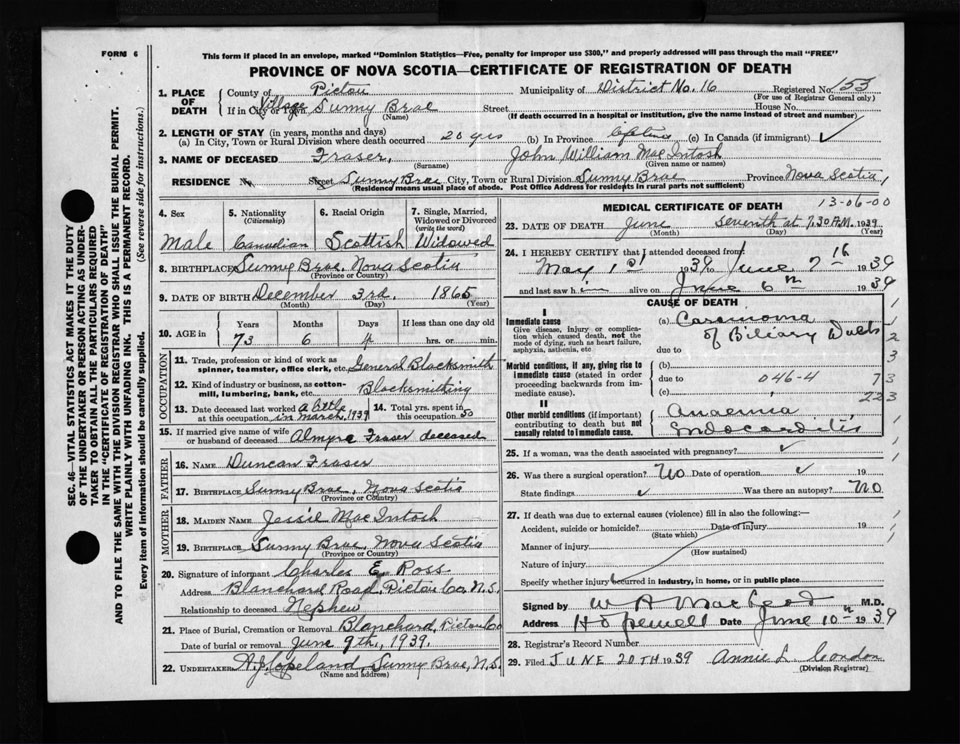 FORM 6
This form if placed in an envelope, marked "Dominion Statistics—Free, penalty for improper use $300," and properly addressed will pass through the mail "FREE"
PROVINCE OF NOVA SCOTIA—CERTIFICATE OF REGISTRATION OF DEATH
SEC. 46—VITAL STATISTICS ACT MAKES IT THE DUTY
OF THE UNDERTAKER OR PERSON ACTING AS UNDER-
TAKER TO OBTAIN ALL THE PARTICULARS REQUIRED
IN THE "CERTIFICATE OF REGISTRATION OF DEATH"
AND TO FILE THE SAME WITH THE DIVISION REGISTRAR WHO SHALL ISSUE THE BURIAL PERMIT.
WRITE PLAINLY WITH UNFADING INK. THIS IS A PERMANENT RECORD.
Every item of information should be carefully supplied. (See reverse side for instructions.)
1. PLACE OF DEATH County of Pictou Municipality of District No. 16 Registered No. 153
(For use of Registrar General only)
If in City or Town Village Sunny Brae Street House No.
(Name) (If death occurred in a hospital or institution, give the name instead of street and number)
2. LENGTH OF STAY (in years, months and days)
(a) In City, Town or Rural Division where death occurred 20 yrs (b) In Province lifetime (c) In Canada (if immigrant) ✓
3. NAME OF DECEASED Fraser, John William MacIntosh
(Surname) (Given name or names)
RESIDENCE No. Street Sunny Brae City, Town or Rural Division Sunny Brae Province Nova Scotia
(Residence means usual place of abode. Post Office Address for residents in rural parts not sufficient)
4. Sex 5. Nationality (Citizenship) 6. Racial Origin 7. Single, Married, Widowed or Divorced (write the word)
Male Canadian Scottish Widowed
8. BIRTHPLACE Sunny Brae, Nova Scotia
(Province or Country)
9. DATE OF BIRTH December 3rd. 1865
(Month) (Day) (Year)
10. AGE in Years Months Days If less than one day
73 6 4 hrs. or min.
OCCUPATION
11. Trade, profession or kind of work as spinner, teamster, office clerk, etc. General Blacksmith
12. Kind of industry or business, as cotton-mill, lumbering, bank, etc. Blacksmithing
13. Date deceased last worked at this occupation a little in march, 1939 14. Total yrs. spent in this occupation 50
15. If married give name of wife or husband of deceased Almyra Fraser deceased
FATHER
16. NAME Duncan Fraser
17. BIRTHPLACE Sunny Brae, Nova Scotia
(Province or Country)
MOTHER
18. MAIDEN NAME Jessie MacIntosh
19. BIRTHPLACE Sunny Brae, Nova Scotia
(Province or Country)
20. Signature of informant Charles E. Ross
Address Blanchard Road, Pictou Co. N.S.
Relationship to deceased Nephew
21. Place of Burial, Cremation or Removal Blanchard, Pictou Co
Date of burial or removal June 9th, 1939.
22. UNDERTAKER A.J. Copeland, Sunny Brae, N.S.
(Name and address)
13-06-00
MEDICAL CERTIFICATE OF DEATH
23. DATE OF DEATH June seventh at 7.30 A.M. 1939
(Month) (Day) (Year)
24. I HEREBY CERTIFY that I attended deceased from
May 1st 1939 to June 7th 1939
and last saw h im alive on June 6th 1939
CAUSE OF DEATH
I
Immediate cause
Give disease, injury or complication which caused death, not the mode of dying, such as heart failure, asphyxia, asthenia, etc.
(a) Carcinoma
of Biliary Ducts
due to
Morbid conditions, if any, giving rise to immediate cause (stated in order proceeding backwards from immediate cause).
(b)
due to 046-4
(c)
II
Other morbid conditions (if important) contributing to death but not causally related to immediate cause.
Anaemia
Endocarditis
1
2
3
73
223
25. If a woman, was the death associated with pregnancy? ✓
26. Was there a surgical operation? No Date of operation ✓ 19
State findings ✓ Was there an autopsy? No
27. If death was due to external causes (violence) fill in also the following:—
Accident, suicide or homicide? Date of injury 19
(State which)
Manner of injury
(How sustained)
Nature of injury
Specify whether injury occurred in industry, in home, or in public place
Signed by W A MacLeod M.D.
Address Hopewell Date June 10th 1939
28. Registrar's Record Number
29. Filed JUNE 20TH 1939 Annie L. Condon
(Division Registrar)